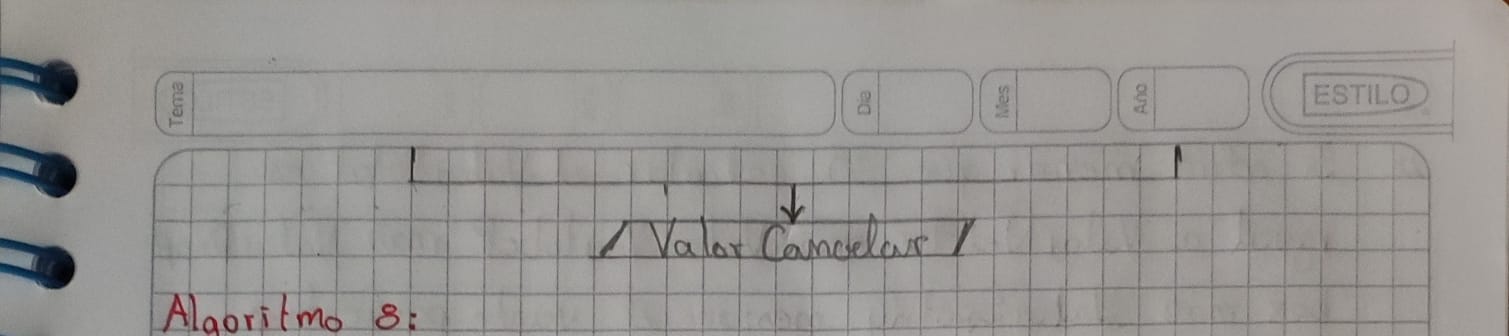 Tema Dia Mes Año ESTILO
Valor Cancelar
Algoritmo 8: